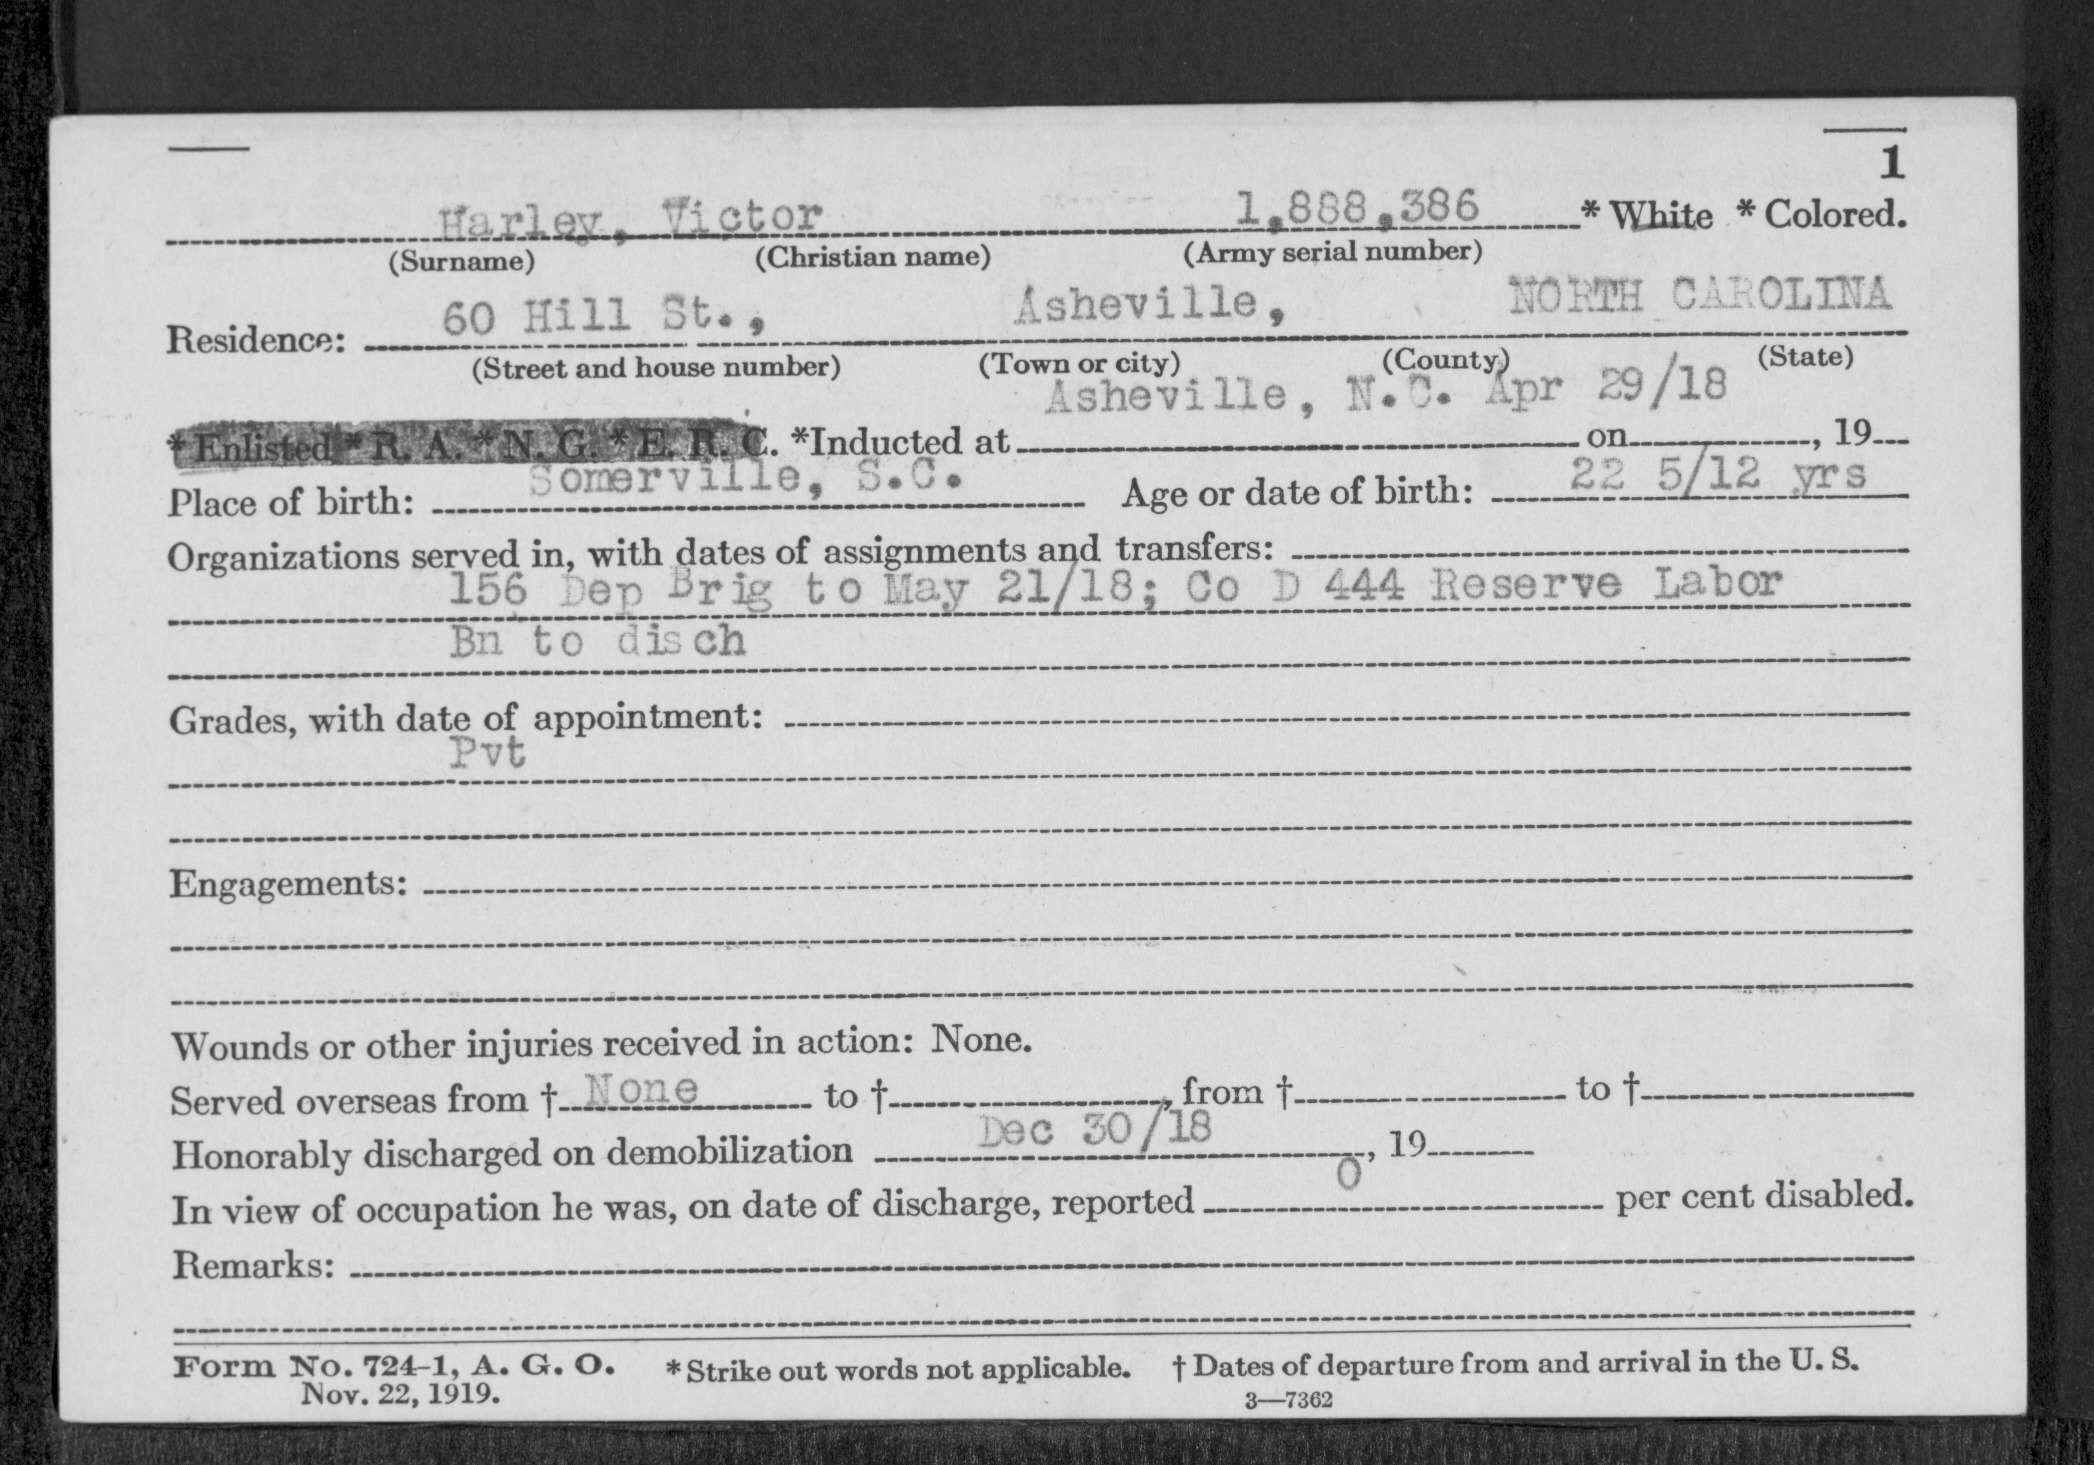 1
Harley, Victor 1,888,386 * White * Colored.
(Surname) (Christian name) (Army serial number)
Residence: 60 Hill St., Asheville, NORTH CAROLINA
(Street and house number) (Town or city) (County) (State)
Asheville, N.C. Apr 29/18
* Enlisted * R. A. * N. G. * E. R. C. *Inducted at on , 19
Place of birth: Somerville, S.C. Age or date of birth: 22 5/12 yrs
Organizations served in, with dates of assignments and transfers:
156 Dep Brig to May 21/18; Co D 444 Reserve Labor
Bn to disch
Grades, with date of appointment:
Pvt
Engagements:
Wounds or other injuries received in action: None.
Served overseas from † None to † , from † to †
Honorably discharged on demobilization Dec 30/18 , 19
In view of occupation he was, on date of discharge, reported 0 per cent disabled.
Remarks:
Form No. 724-1, A. G. O. * Strike out words not applicable. † Dates of departure from and arrival in the U. S.
Nov. 22, 1919. 3—7362